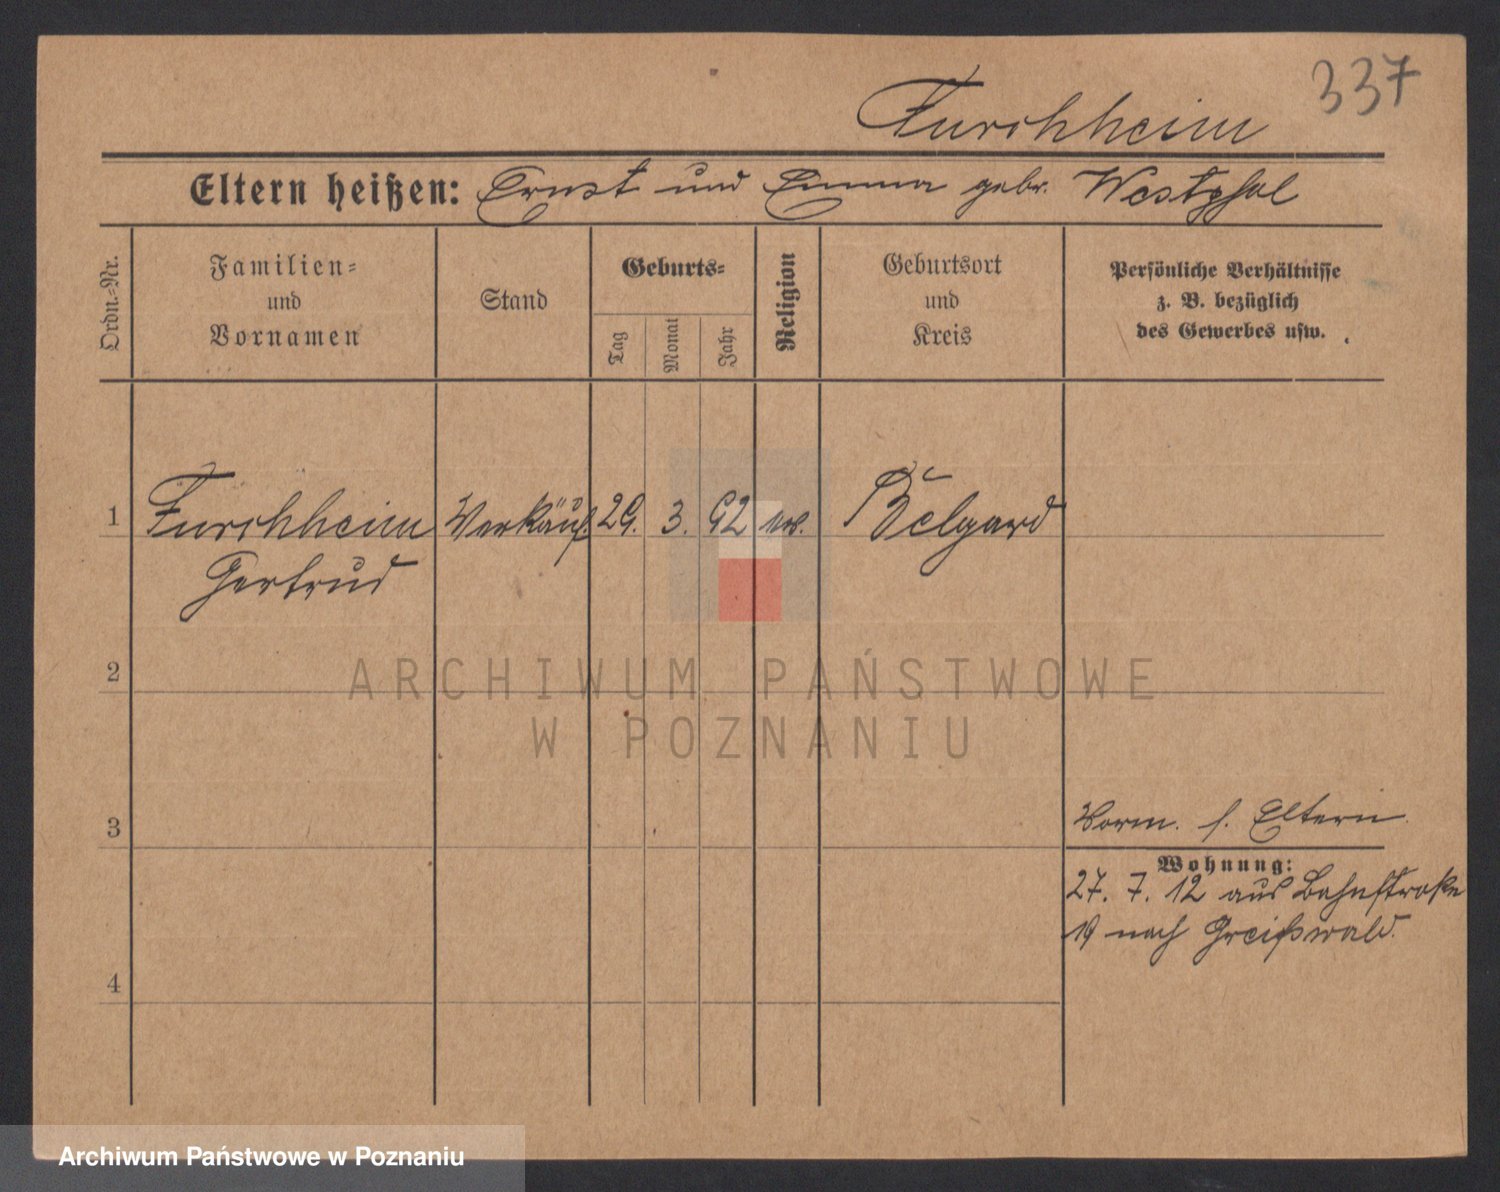 337
Furchheim
Eltern heißen: Ernst und Emma gebr. Westphal
Ordn.-Nr.
Familien-
und
Vornamen
Stand
Geburts-
Tag
Monat
Jahr
Religion
Geburtsort
und
Kreis
Persönliche Verhältnisse
z. B. bezüglich
des Gewerbes usw.
1 Furchheim Verkäuf. 29. 3. 92 ev. Belgard
Gertrud
ARCHIWUM PAŃSTWOWE
W POZNANIU
2
3
Vorm. s. Eltern.
Wohnung:
27. 7. 12 aus Bahnstraße
19 nach Greifswald.
4
Archiwum Państwowe w Poznaniu